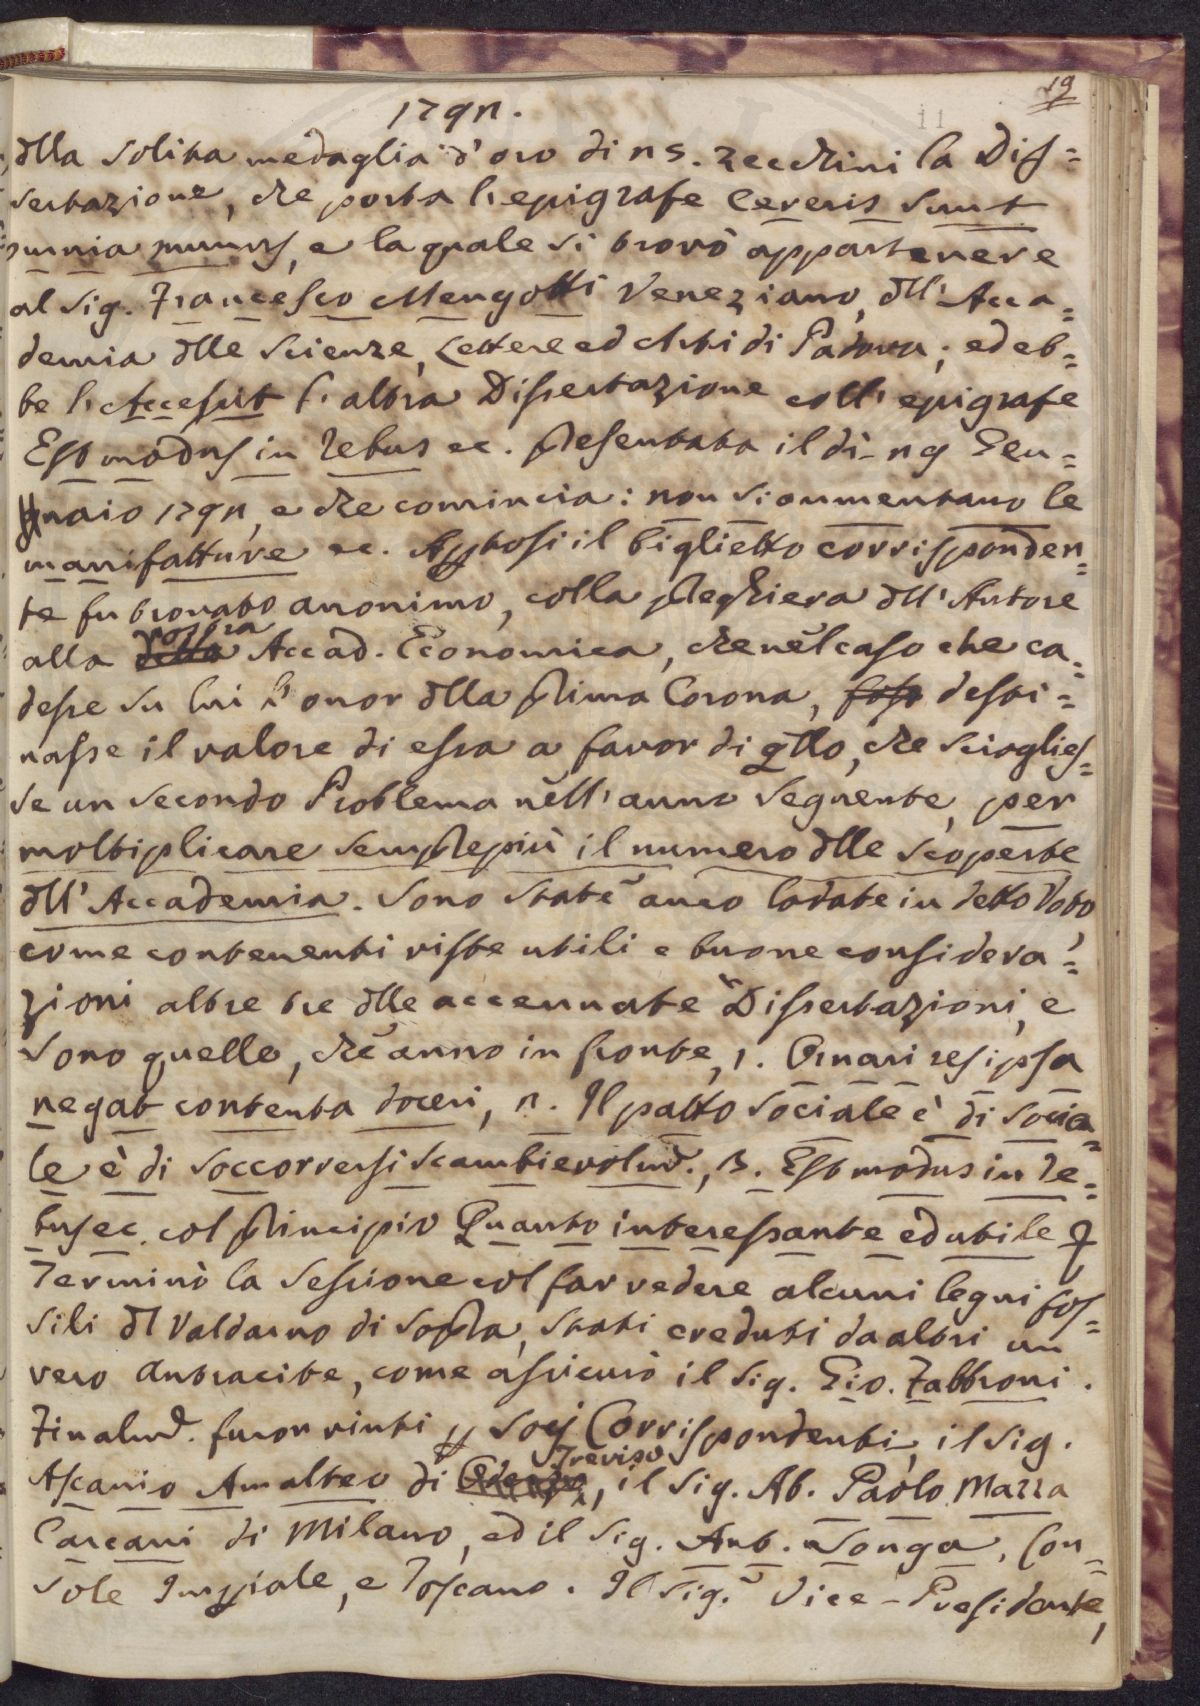 19
1792.
11
dlla solita medaglia d'oro di 25. zecchini la Dis=
sertazione, che porta l'epigrafe Cereris sunt
omnia munus, e la quale si trovò appartenere
al Sig. Francesco Mengotti Veneziano, dll' Acca=
demia dlle Scienze, Lettere ed Arti di Padova; ed eb=
be l'Accessit l'altra Dissertazione coll' epigrafe
Est modus in rebus ec. presentata il dì 29 Gen=
naio 1792, e che comincia: non si aumentano le
manifatture ec. Apertosi il biglietto corrisponden=
te fu trovato anonimo, colla preghiera dll' Autore
alla nostra Accad. Economica, che nel caso che ca=
desse su lui l'onor dlla prima Corona, desti=
nasse il valore di essa a favor di qllo, che scioglies=
se un secondo Problema nell' anno seguente, per
moltiplicare sempre più il numero dlle scoperte
dll' Accademia. Sono state anco lodate in detto Voto,
come contenenti viste utili e buone considera=
zioni altre tre dlle accennate Dissertazioni, e
sono quelle, che anno in fronte, 1. Ornari res ipsa
negat contenta doceri, 2. Il patto sociale è di socia=
le è di soccorrersi scambievolmd., 3. Est modus in re=
bus ec. col principio Quanto interessante ed utile
Terminò la Sessione col far vedere alcuni legni fos=
sili dl Valdarno di Sopra, stati creduti da altri un
vero Antracite, come assicurò il Sig. Gio. Fabbroni.
Finalmd. furon vinti p Socj Corrispondenti, il Sig.
Ascanio Amalteo di Treviso, il Sig. Ab. Paolo Mazza
Carcani di Milano, ed il Sig. Ant. Songa, Con=
sole Imperiale, e Toscano. Il Sig. Vice-Presidente,